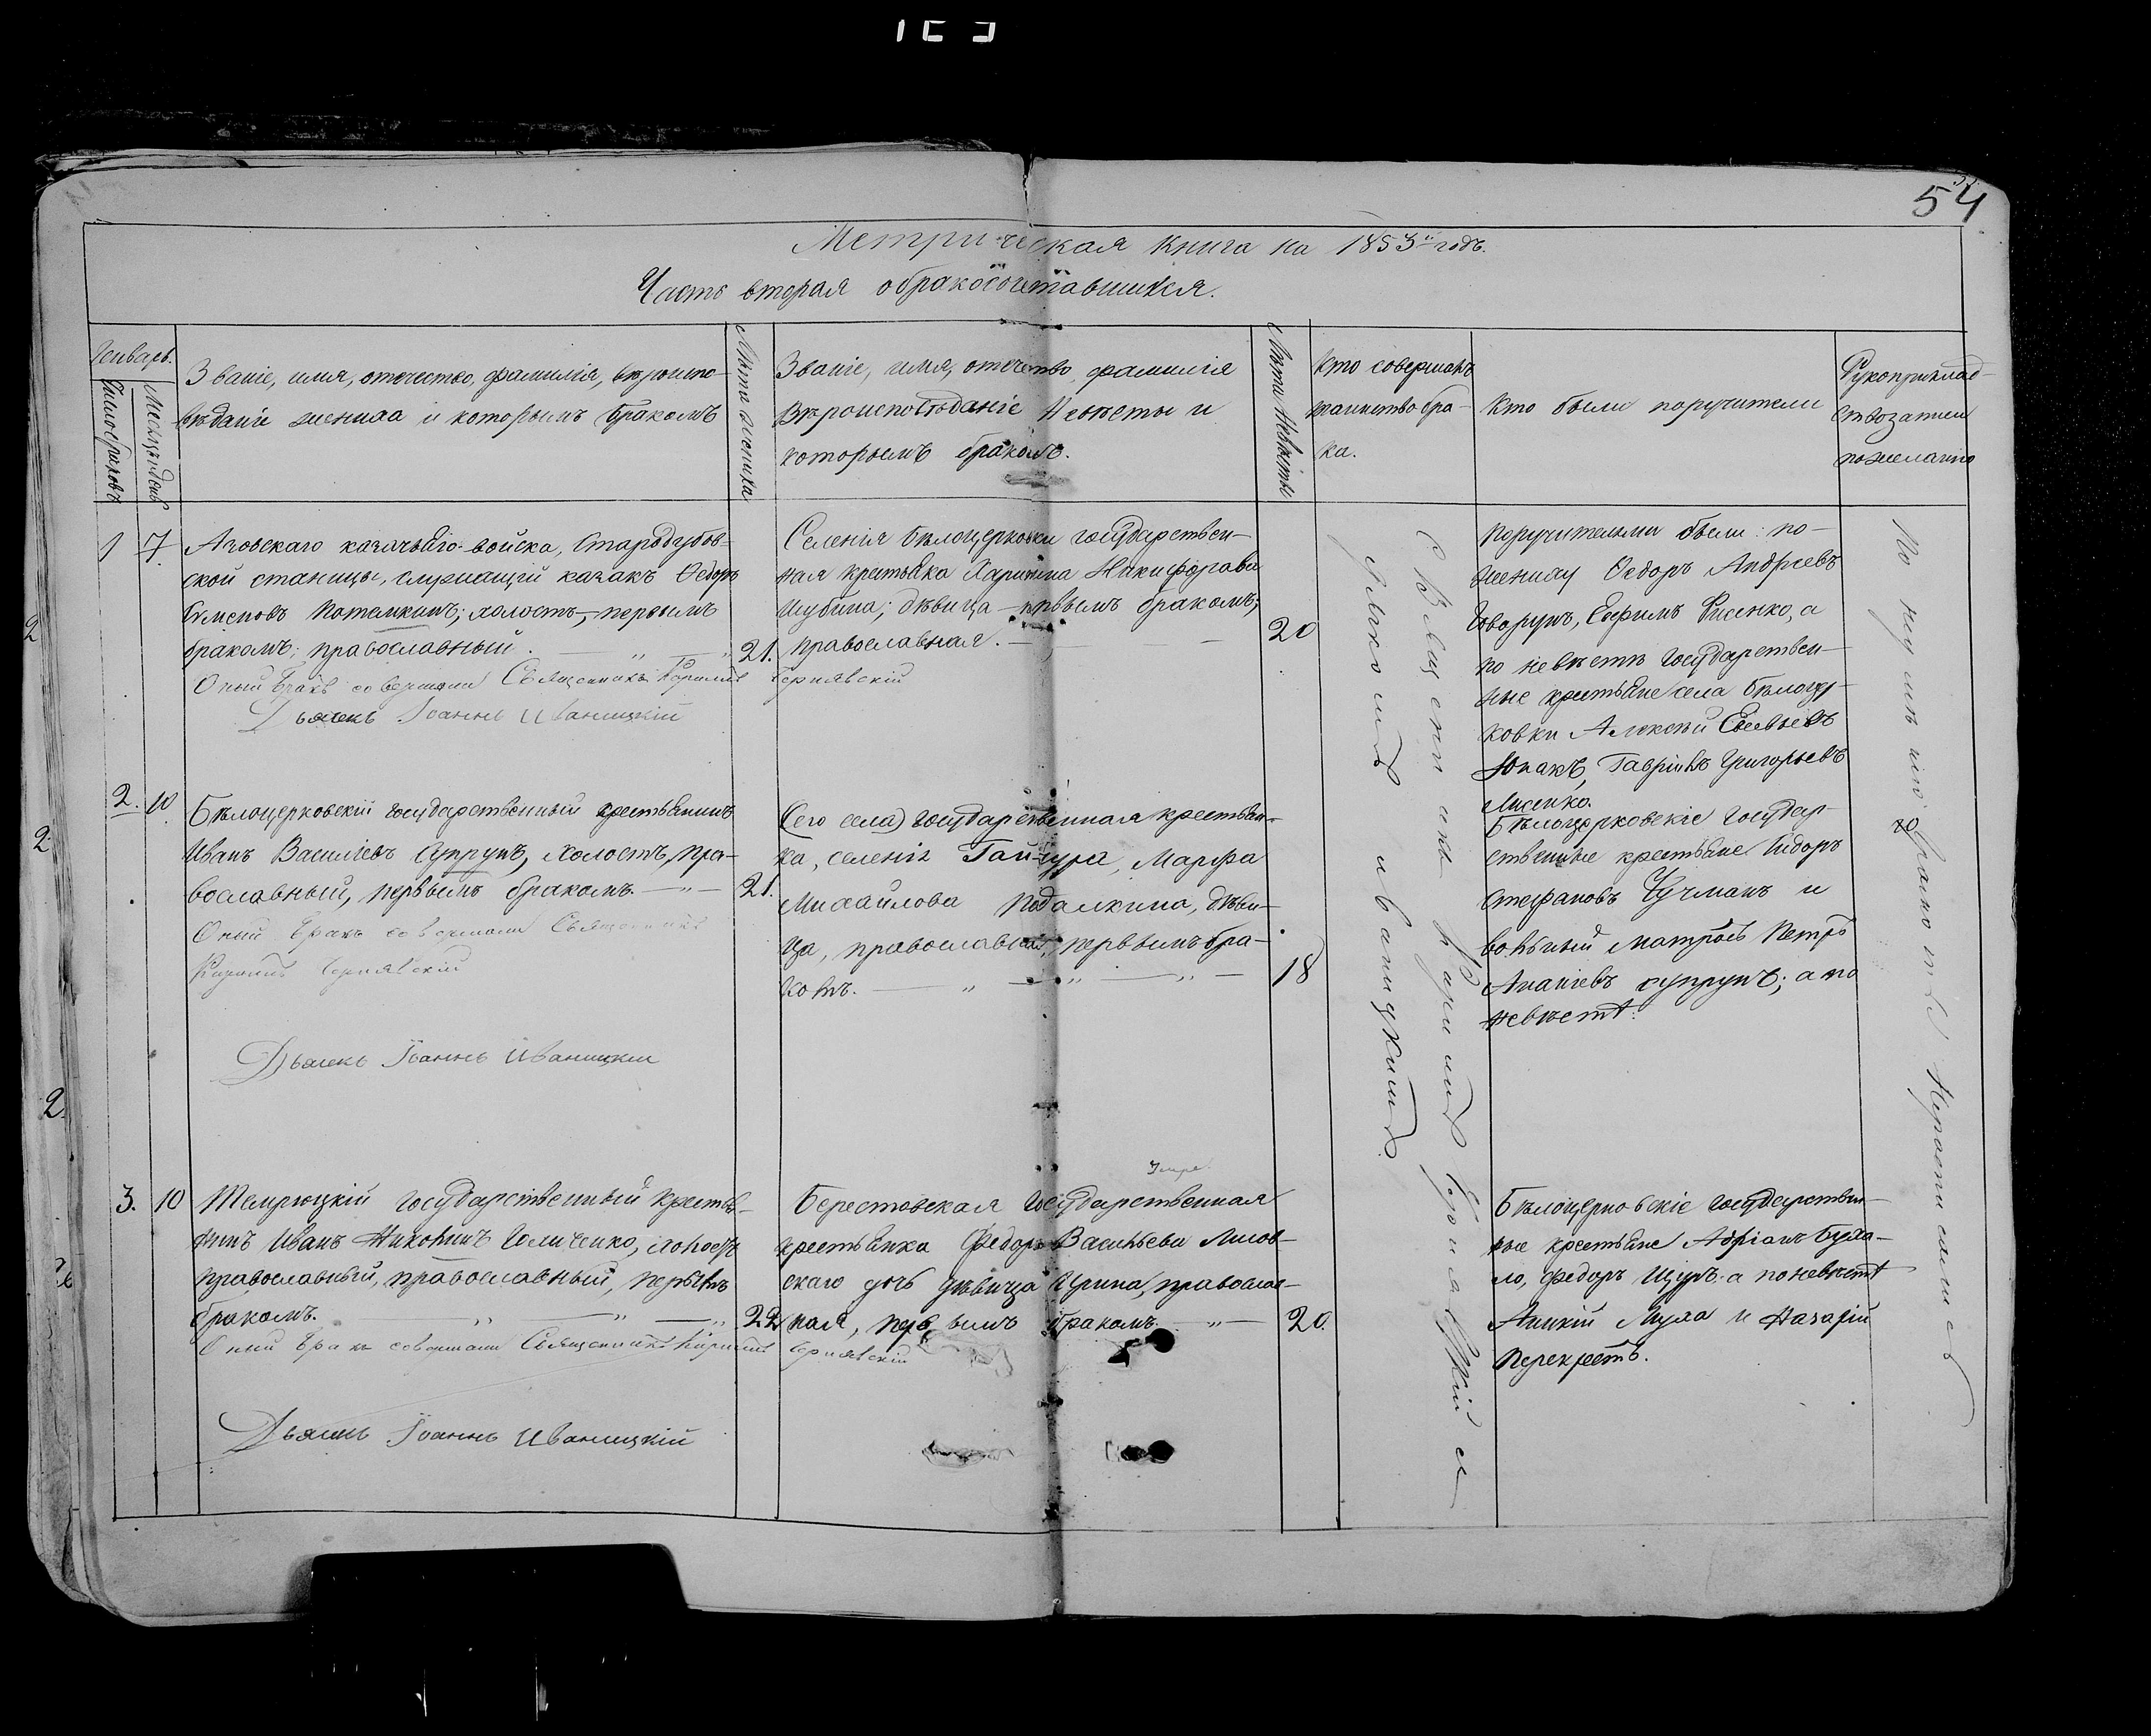 54
Метрическая книга на 1853й годъ.
Часть вторая о бракосочетавшихся.
Январь.
Число браковъ
Месяцъ и день
Званіе, имя, отечество, фамилія, вѣроиспо-
вѣданіе жениха и которымъ бракомъ
Лѣта жениха
Званіе, имя, отечество, фамилія
Вѣроисповѣданіе Невѣсты и
которымъ бракомъ.
Лѣта Невѣсты
Кто совершалъ
таинство бра-
ка.
Кто были поручители
Рукоприклад-
ство записи
по желанію
1
7.
Азовскаго казачьяго войска, Стародубов-
ской станицы, служащій казакъ Ѳедоръ
Семеновъ Потемкинъ; холостъ, первымъ
бракомъ; православный.
21.
Оный бракъ совершалъ Священникъ Кириллъ Чернявскій
Дьячекъ Іоаннъ Иваницкій
Селенія Бѣлоцерковки государствен-
ная крестьянка Харитина Никифорова
Шубина; дѣвица первымъ бракомъ;
православная.
20
Поручителями были: по-
жениху Ѳедоръ Андреевъ
Говорунъ, Ефимъ Лисенко, а
по невѣстѣ государствен-
ные крестьяне села Бѣлоцер-
ковки Алексѣй Евсѣевъ
Юнакъ, Гавріилъ Григорьевъ
Лисенко.
2.
10.
Бѣлоцерковскій государственный крестьянинъ
Иванъ Василіевъ Супрунъ, холостъ, пра-
вославный, первымъ бракомъ.
21.
Оный бракъ совершалъ Священникъ
Кириллъ Чернявскій
Дьячекъ Іоаннъ Иваницкій
Сего села) государственная крестьян-
ка, селенія Гайчура, Марфа
Михайлова Подалкина, дѣви-
ца, православная, первымъ бра-
комъ.
18
Бѣлоцерковскіе государ-
ственные крестьяне Сидоръ
Стефановъ Чучманъ и
вольный матросъ Петръ
Ананіевъ Супрунъ; а по
невѣстѣ:
3.
10
Темрюцкій государственный крестья-
нинъ Иванъ Никоновъ Голиченко, холостъ
православный, православный, первымъ
бракомъ.
22
Оный бракъ совершалъ Священникъ Кириллъ Чернявскій
Дьячекъ Іоаннъ Иваницкій
Берестовская государственная
крестьянка Федора Васильева Лисов-
скаго дочь дѣвица Ирина, православ-
ная, первымъ бракомъ
20.
Бѣлоцерковскіе государствен-
ные крестьяне Адріанъ Бухало,
Федоръ Щуръ а по невѣстѣ
Аникій Муха и Назарій
Перекрестъ.
Священникъ Кириллъ Чернявскій съ
дьячкомъ Иваницкимъ.
По неумѣнію грамотѣ
2
2
2.